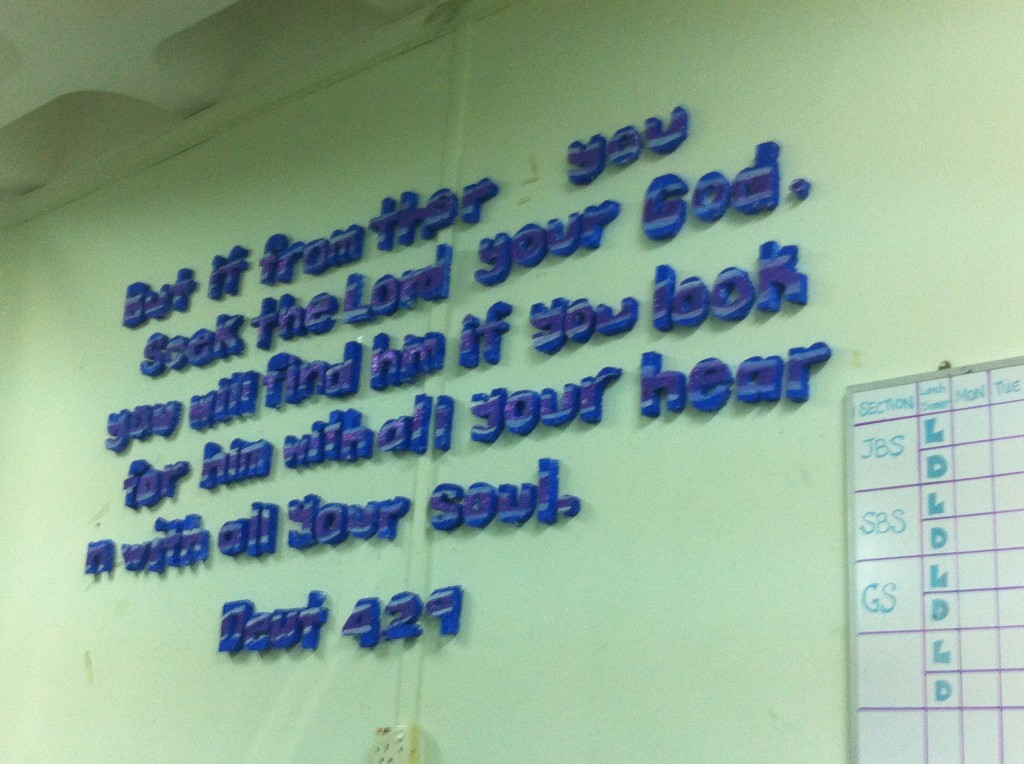 But if from ther you
Seek the Lord your God.
you will find him if you look
for him with all your hear
n with all your soul.
Deut 429
SECTION Lunch Dinner MON TUE
JBS L
D
SBS L
D
GS L
D
L
D